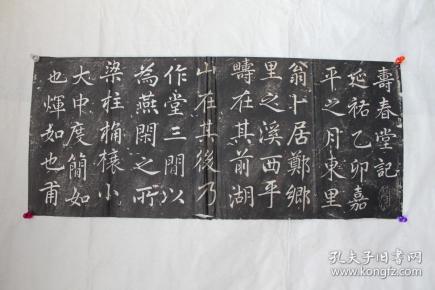 壽春堂記
延祐乙卯嘉
平之月東里
翁卜居鄭鄉
里之溪西平
疇在其前湖
山在其後乃
作堂三間以
為燕閑之所
梁柱桷榱小
大中度簡如
也煇如也甫
孔夫子旧书网
www.kongfz.com